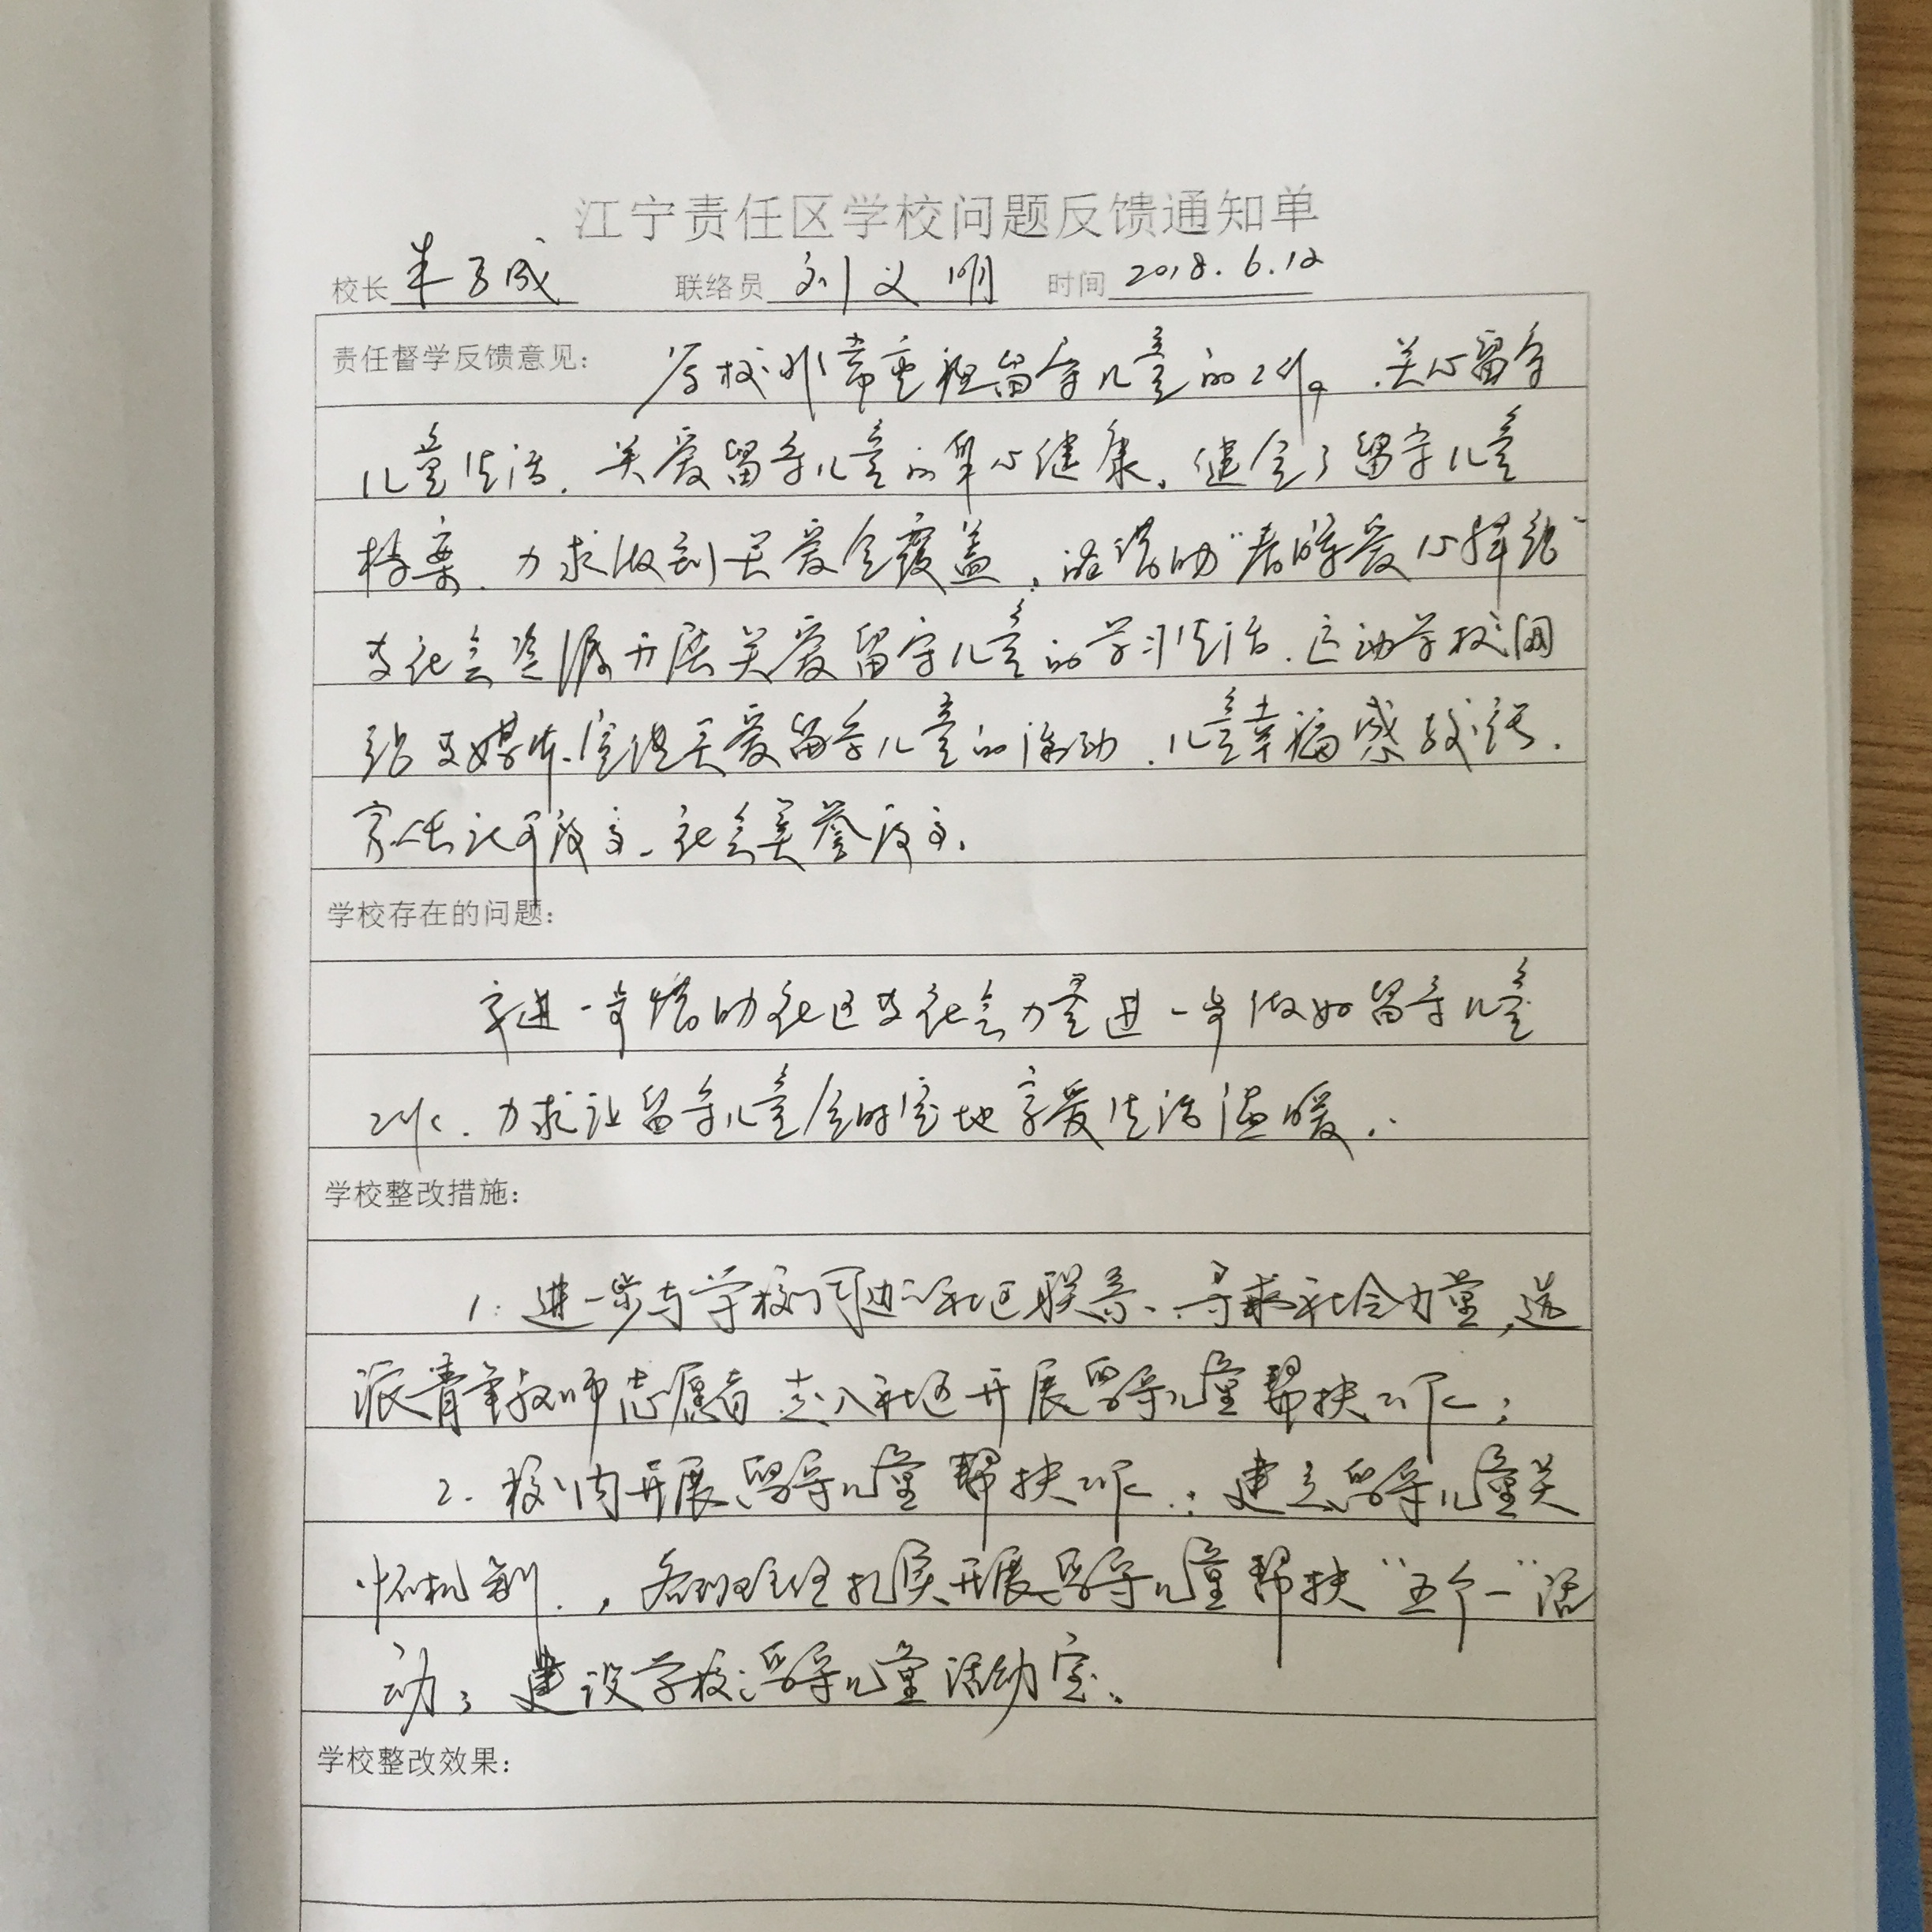 江宁责任区学校问题反馈通知单
校长 朱子成 联络员 刘义明 时间 2018.6.12
责任督学反馈意见: 学校非常重视留守儿童的工作。关心留守
儿童生活,关爱留守儿童的身心健康。健全了留守儿童
档案,力求做到关爱全覆盖,能借助“春晖爱心驿站”
及社会资源开展关爱留守儿童的学习生活,运动学校网
站及媒体宣传关爱留守儿童的活动,儿童幸福感较强,
家长认可度高,社会美誉度高。
学校存在的问题:
进一步借助社区及社会力量进一步做好留守儿童
工作,力求让留守儿童全时空地享受生活温暖。
学校整改措施:
1. 进一步与学校周边的社区联系,寻求社会力量,选
派青年教师志愿者走入社区开展留守儿童帮扶工作;
2. 校内开展留守儿童帮扶工作:建立留守儿童关
怀机制,各班主任扎实开展留守儿童帮扶“五个一”活
动;建设学校留守儿童活动室。
学校整改效果: